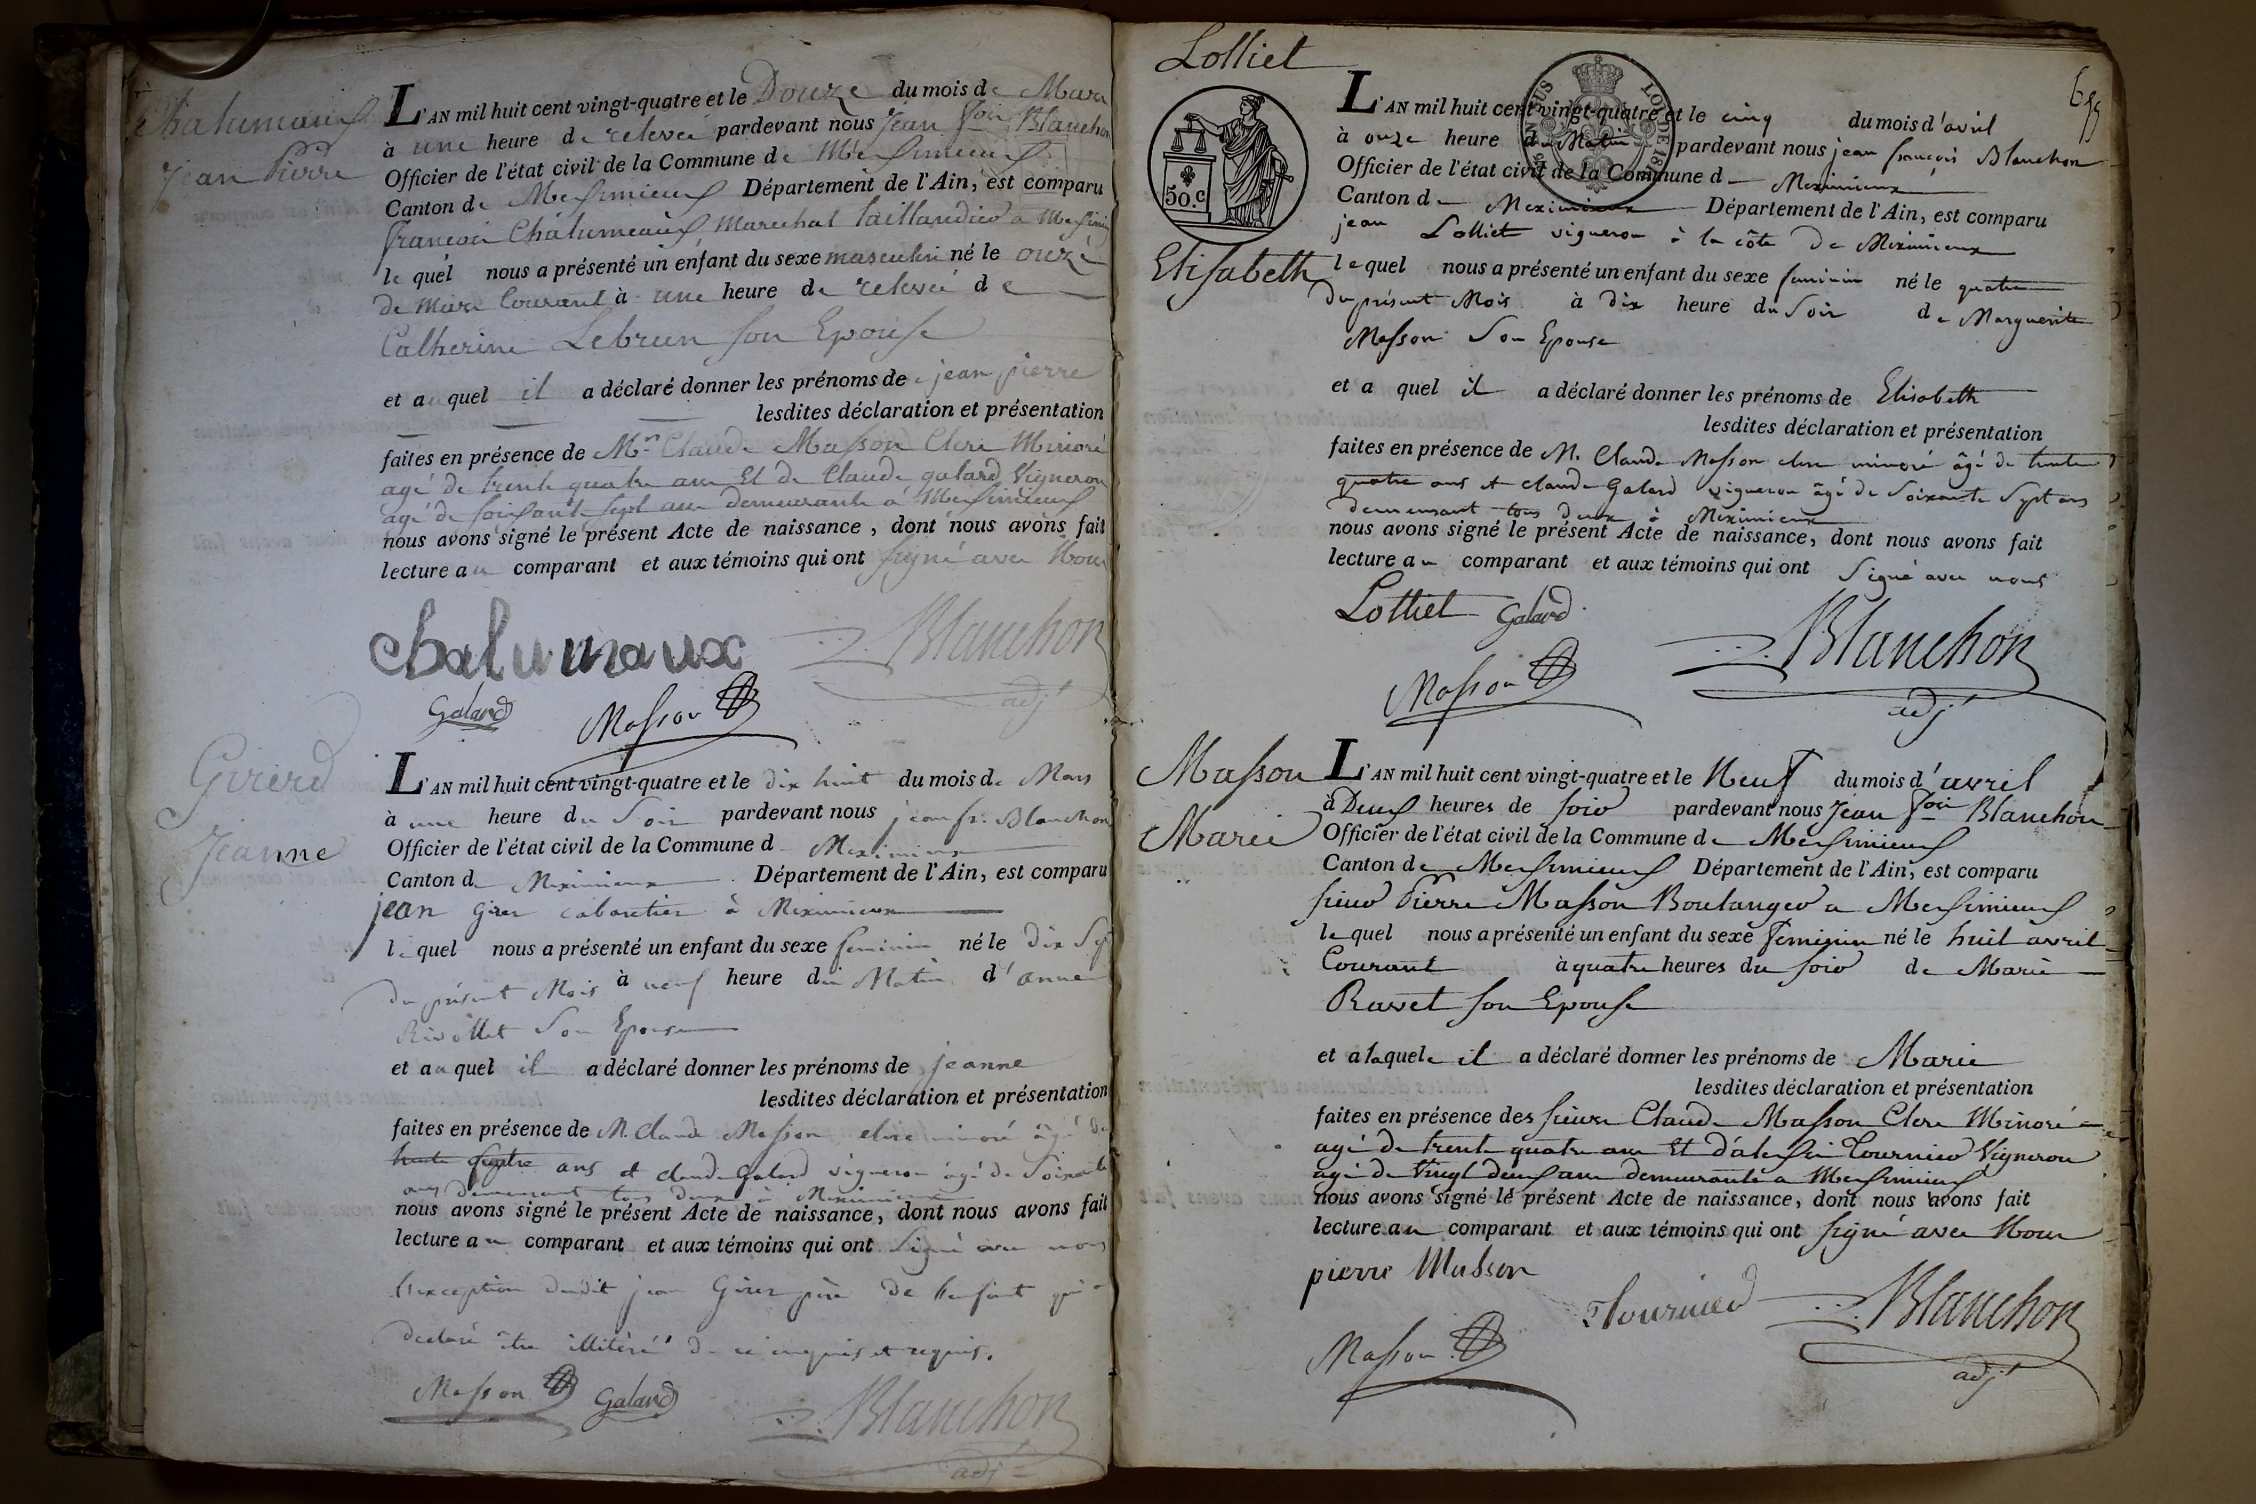 Chalumeaux
Jean Pierre
L'AN mil huit cent vingt-quatre et le Douze du mois de Mars
à une heure de relevée pardevant nous Jean fois Blanchon
Officier de l'état civil de la Commune de Meximieux
Canton de Meximieux Département de l'Ain, est comparu
françois Chalumeaux Marechal taillandier a Meximieux
le quel nous a présenté un enfant du sexe masculin né le onze
de mars Courant à une heure de relevée de
Catherine Lebrun son Epouse
et au quel il a déclaré donner les prénoms de jean pierre
lesdites déclaration et présentation
faites en présence de Mr Claude Masson Clerc Minoré
agé de trente quatre ans Et de Claude galard Vigneron
agé de soixante sept ans demeurants a Meximieux
nous avons signé le présent Acte de naissance, dont nous avons fait
lecture au comparant et aux témoins qui ont signé avec Nous
Chalumaux
Blanchon
adjt
Galard
Masson
Girerd
Jeanne
L'AN mil huit cent vingt-quatre et le dix huit du mois de Mars
à une heure du Soir pardevant nous jean fr. Blanchon
Officier de l'état civil de la Commune d Meximieux
Canton de Meximieux Département de l'Ain, est comparu
jean Girer cabaretier à Meximieux
le quel nous a présenté un enfant du sexe feminin né le dix Sept
du présent Mois à neuf heure du Matin d'anne
Rivollet Son Epouse
et au quel il a déclaré donner les prénoms de jeanne
lesdites déclaration et présentation
faites en présence de M. Claude Masson clerc minoré âgé de
ans et claude Galard vigneron âgé de Soixante
ans demeurant tous deux à Meximieux
nous avons signé le présent Acte de naissance, dont nous avons fait
lecture au comparant et aux témoins qui ont Signé avec nous
l'exception dudit jean Girer père de l'enfant qui a
declaré être illitéré de ce enquis et requis.
Masson Galard
Blanchon
adjt
655
Lolliet
Elisabeth
50.c
L'AN mil huit cent vingt-quatre et le cinq du mois d'avril
à onze heure du Matin pardevant nous jean françois Blanchon
Officier de l'état civil de la Commune d Meximieux
Canton de Meximieux Département de l'Ain, est comparu
jean Lolliet vigneron à la côte de Meximieux
le quel nous a présenté un enfant du sexe feminin né le quatre
du présent Mois à dix heure du Soir de Marguerite
Masson Son Epouse
et a quel il a déclaré donner les prénoms de Elisabeth
lesdites déclaration et présentation
faites en présence de M. Claude Masson clerc minoré âgé de trente
quatre ans et claude Galard vigneron âgé de Soixante Sept ans
demeurant tous deux à Meximieux
nous avons signé le présent Acte de naissance, dont nous avons fait
lecture au comparant et aux témoins qui ont Signé avec nous
Lolliet Galard
Blanchon
adjt
Masson
Masson
Marie
L'AN mil huit cent vingt-quatre et le Neuf du mois d'avril
à Deux heures de soir pardevant nous Jean fois Blanchon
Officier de l'état civil de la Commune de Meximieux
Canton de Meximieux Département de l'Ain, est comparu
sieur Pierre Masson Boulanger a Meximieux
le quel nous a présenté un enfant du sexe Feminin né le huit avril
Courant à quatre heures du soir de Marie
Ravet son Epouse
et a laquele il a déclaré donner les prénoms de Marie
lesdites déclaration et présentation
faites en présence des sieurs Claude Masson Clerc Minoré
agé de trente quatre ans Et d'alexis Tournier Vigneron
agé de Vingt deux ans demeurants a Meximieux
nous avons signé le présent Acte de naissance, dont nous avons fait
lecture au comparant et aux témoins qui ont signé avec Nous
pierre Masson
Tournier
Blanchon
adjt
Masson